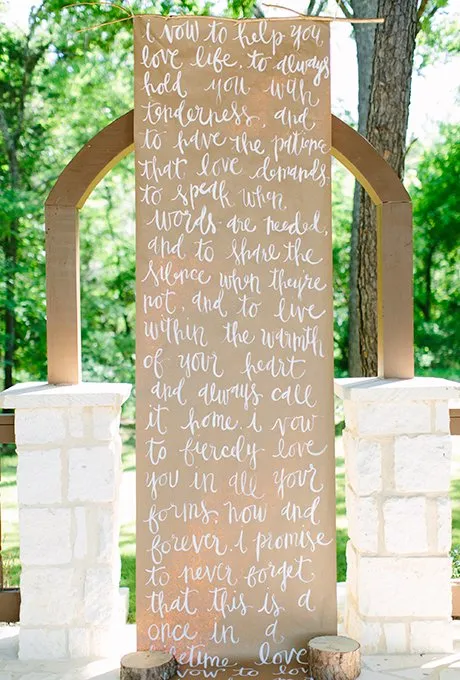 i vow to help you
love life, to always
hold you with
tenderness, and
to have the patience
that love demands
to speak when
words are needed,
and to share the
silence when they're
not, and to live
within the warmth
of your heart
and always call
it home. i vow
to fiercely love
you in all your
forms, now and
forever. i promise
to never forget
that this is a
once in a
lifetime love
vow to love